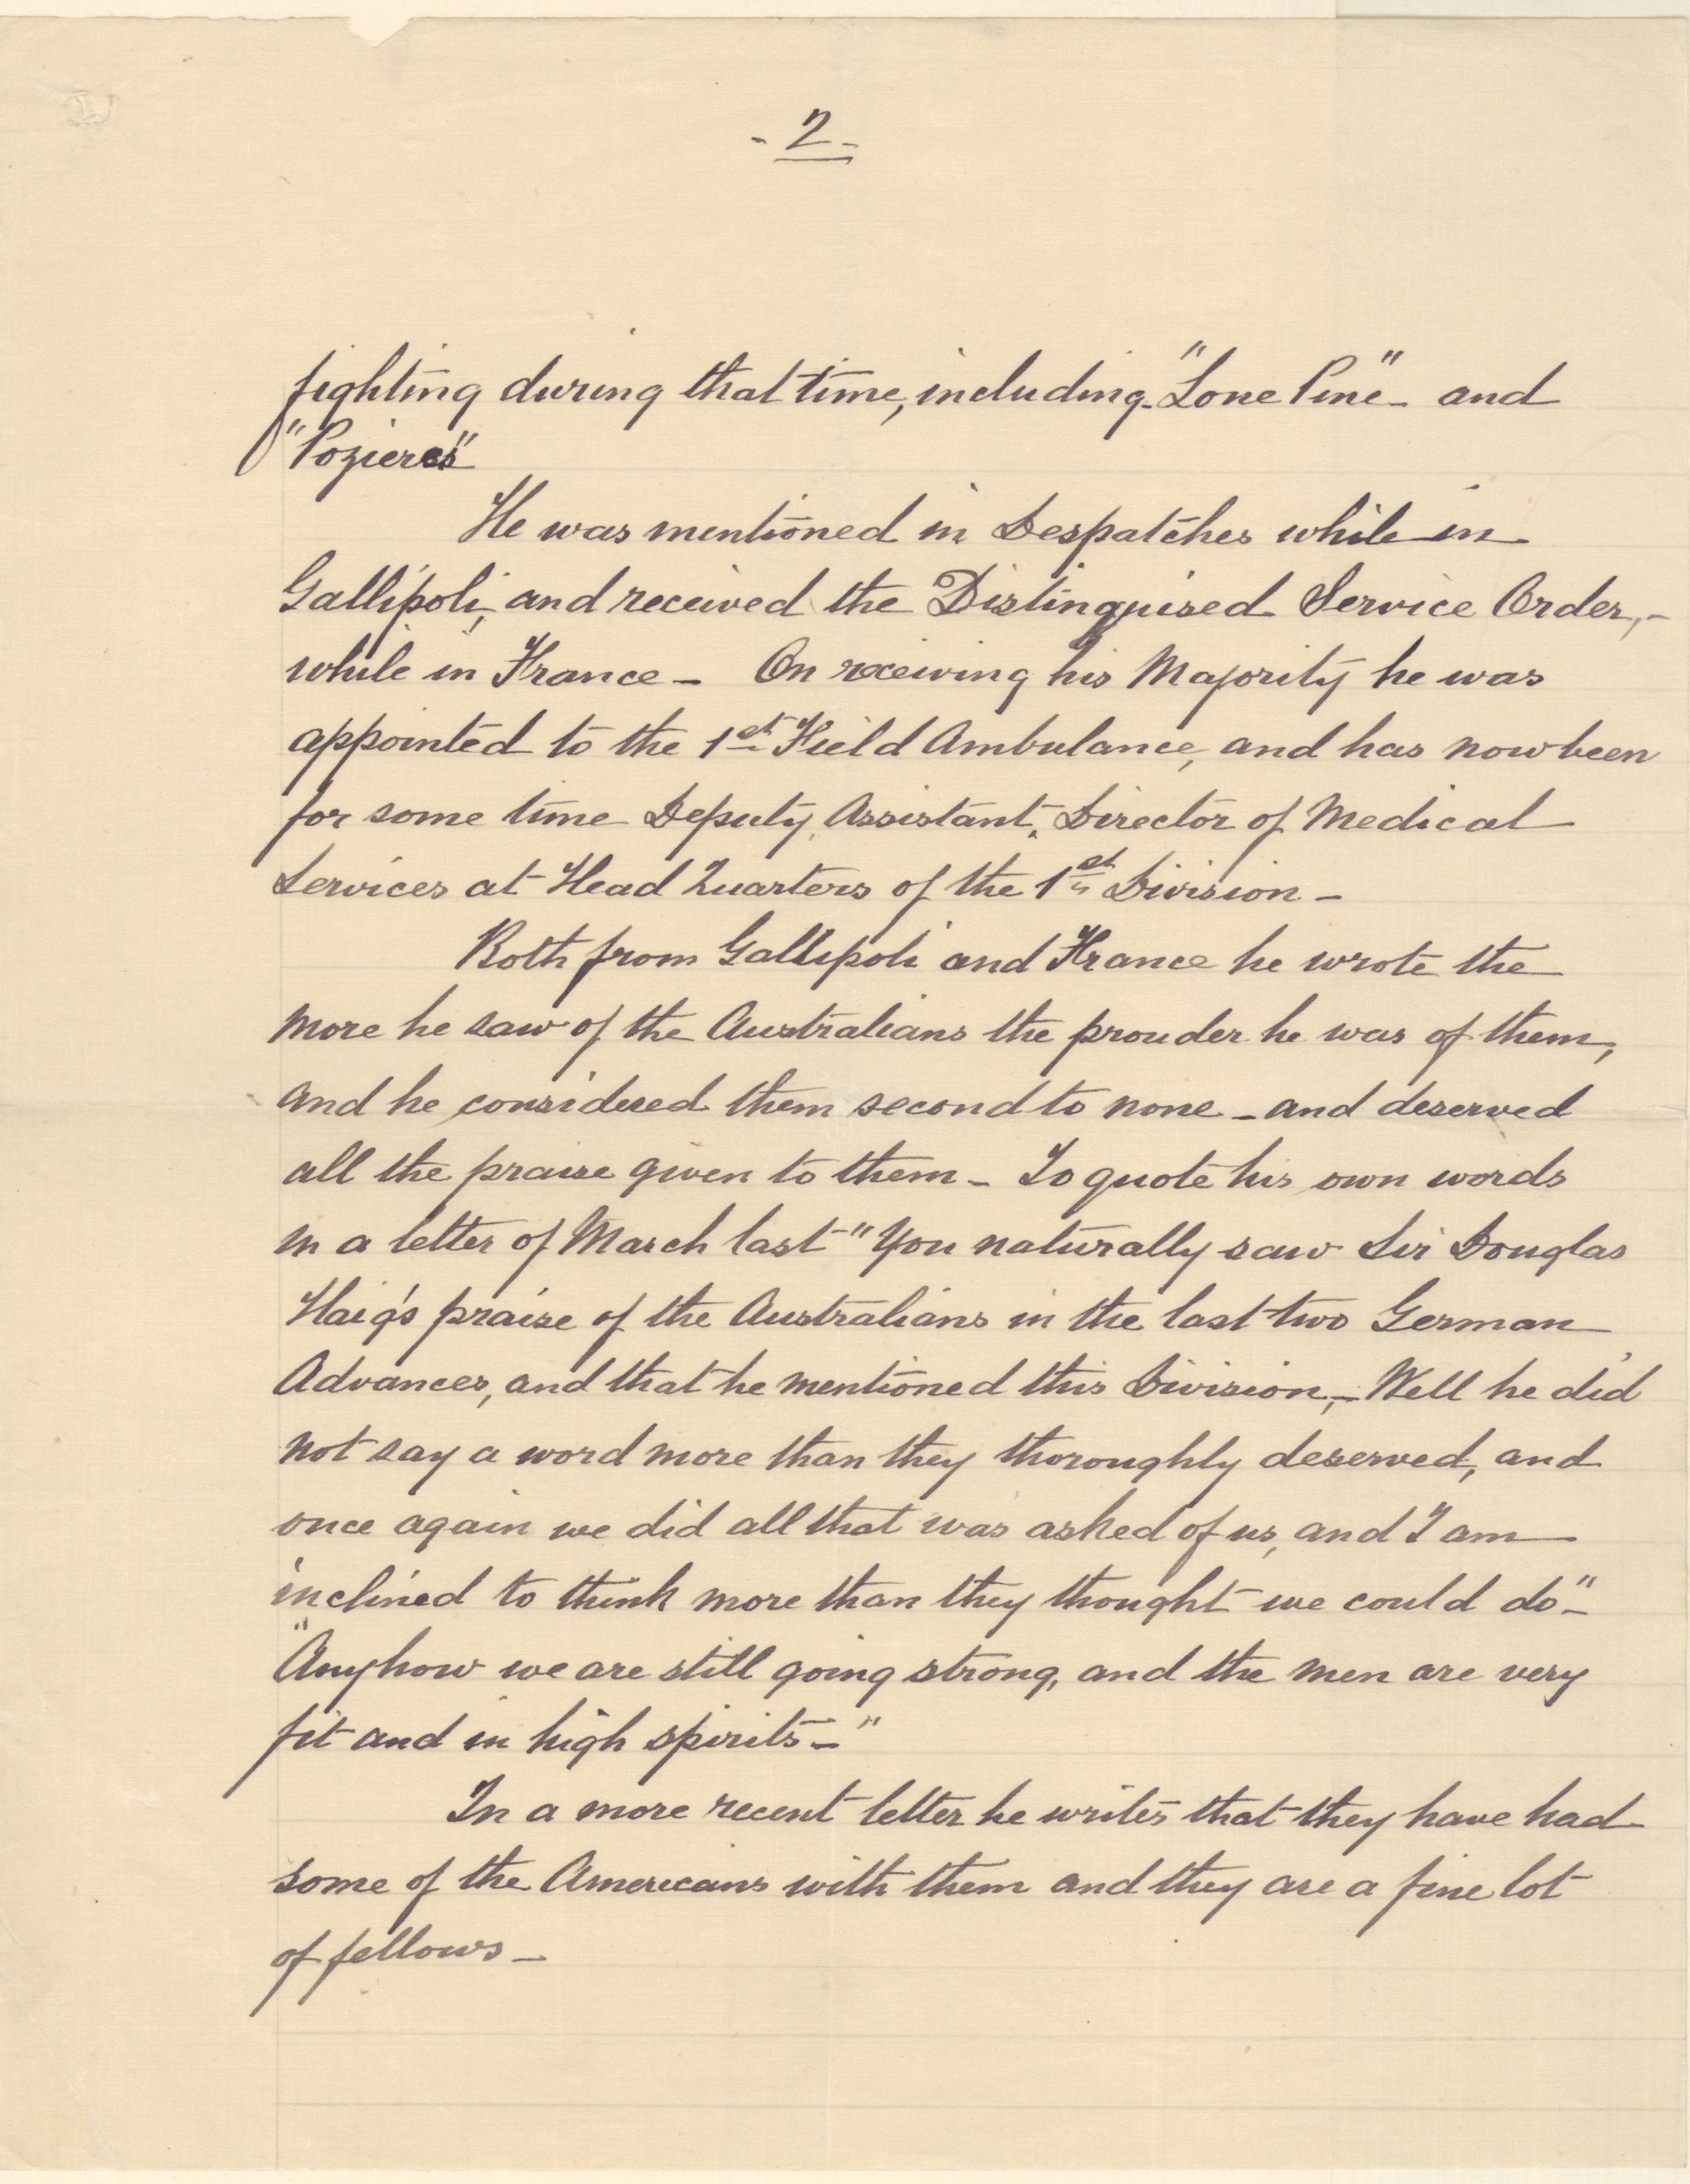 - 2 -
fighting during that time, including - "Lone Pine" - and
"Pozieres"
He was mentioned in Despatches while in
Gallipoli, and received the Distinguised Service Order, -
while in France - On receiving his Majority he was
appointed to the 1st Field Ambulance, and has now been
for some time Deputy, Assistant, Director of Medical
Services at Head Quarters of the 1st Division -
Both from Gallipoli and France he wrote the
more he saw of the Australians the prouder he was of them,
and he considered them second to none - and deserved
all the praise given to them - To quote his own words
in a letter of March last "You naturally saw Sir Douglas
Haig's praise of the Australians in the last two German
Advances, and that he mentioned this Division, - Well he did
not say a word more than they thoroughly deserved, and
once again we did all that was asked of us, and I am
inclined to think more than they thought we could do" -
"Anyhow we are still going strong, and the men are very
fit and in high spirits - "
In a more recent letter he writes that they have had
some of the Americans with them and they are a fine lot
of fellows -